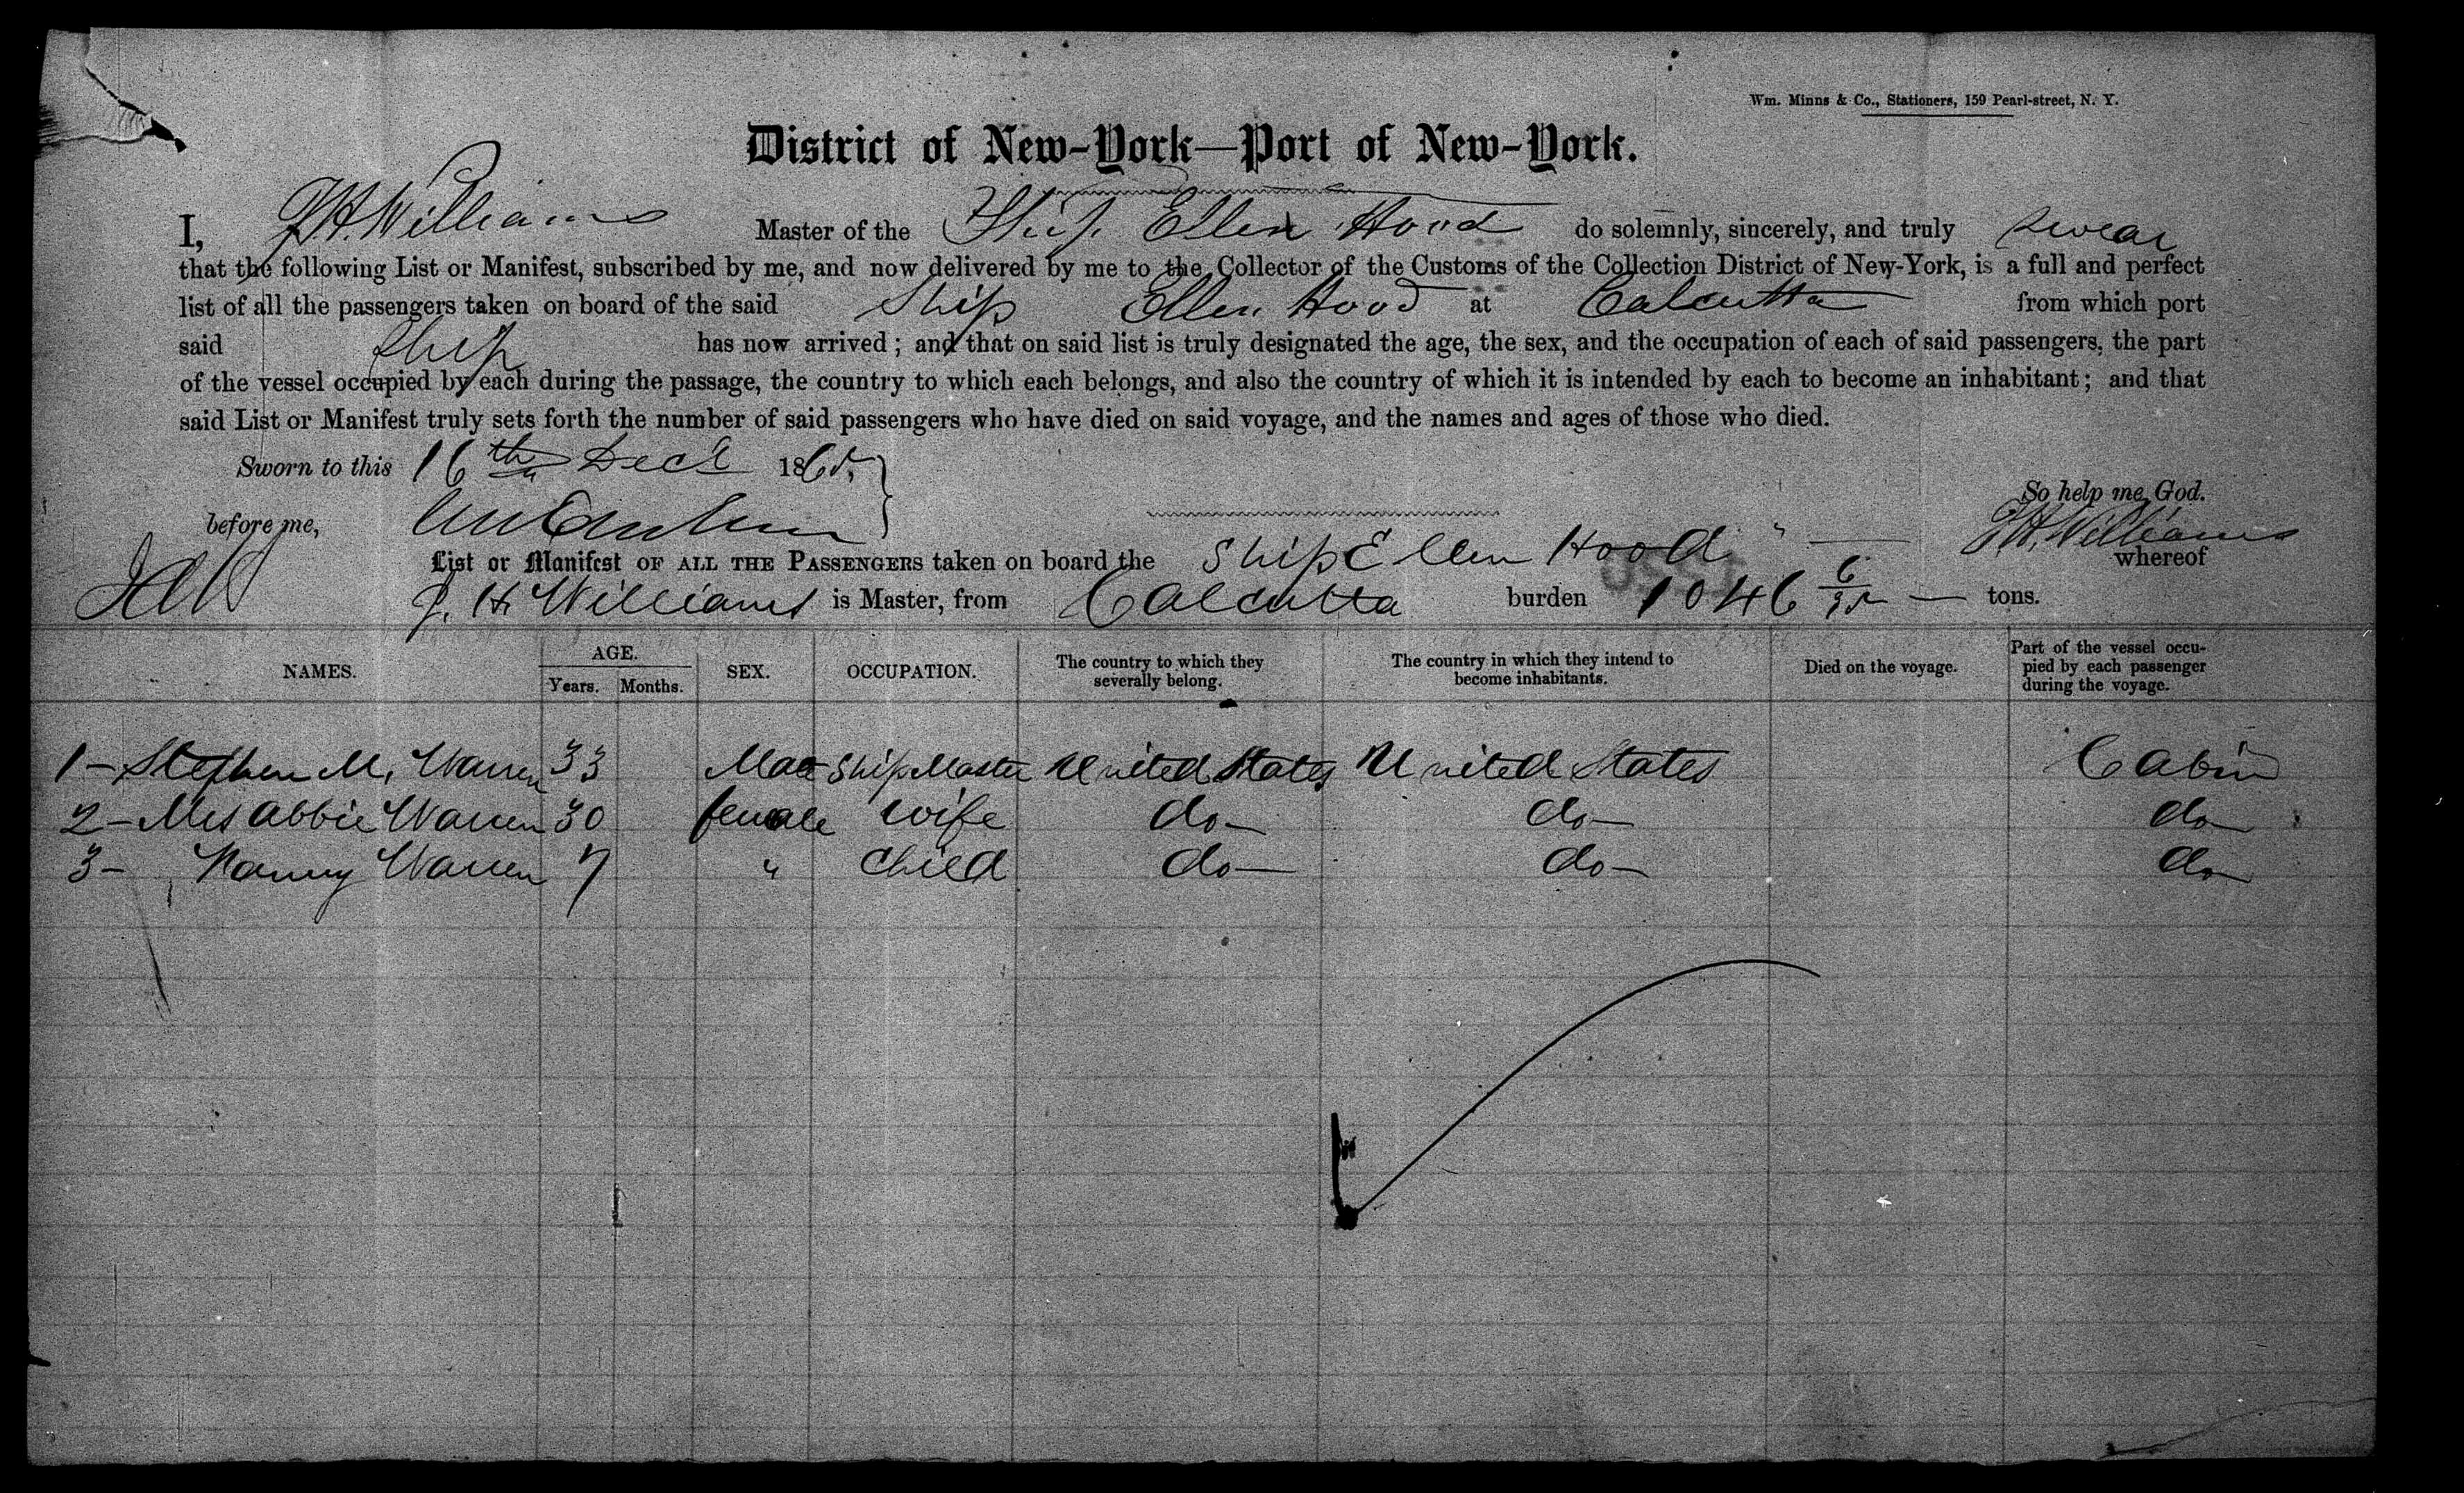 Wm. Minns & Co., Stationers, 159 Pearl-street, N. Y.
District of New-York—Port of New-York.
I, J. H. Williams Master of the Ship Ellen Hood do solemnly, sincerely, and truly swear
that the following List or Manifest, subscribed by me, and now delivered by me to the Collector of the Customs of the Collection District of New-York, is a full and perfect
list of all the passengers taken on board of the said Ship Ellen Hood at Calcutta from which port
said Ship has now arrived; and that on said list is truly designated the age, the sex, and the occupation of each of said passengers, the part
of the vessel occupied by each during the passage, the country to which each belongs, and also the country of which it is intended by each to become an inhabitant; and that
said List or Manifest truly sets forth the number of said passengers who have died on said voyage, and the names and ages of those who died.
Sworn to this 16th Dec 1865
So help me God.
before me, J. H. Williams
List or Manifest OF ALL THE PASSENGERS taken on board the Ship Ellen Hood whereof
J. H. Williams is Master, from Calcutta burden 1046 6/95 tons.
NAMES. AGE. Years. Months. SEX. OCCUPATION. The country to which they severally belong. The country in which they intend to become inhabitants. Died on the voyage. Part of the vessel occupied by each passenger during the voyage.
1 – Stephen M. Warren 33 Male Ship Master United States United States Cabin
2 – Mrs Abbie Warren 30 female wife do – do – do
3 – Nanny Warren 7 " Child do – do – do